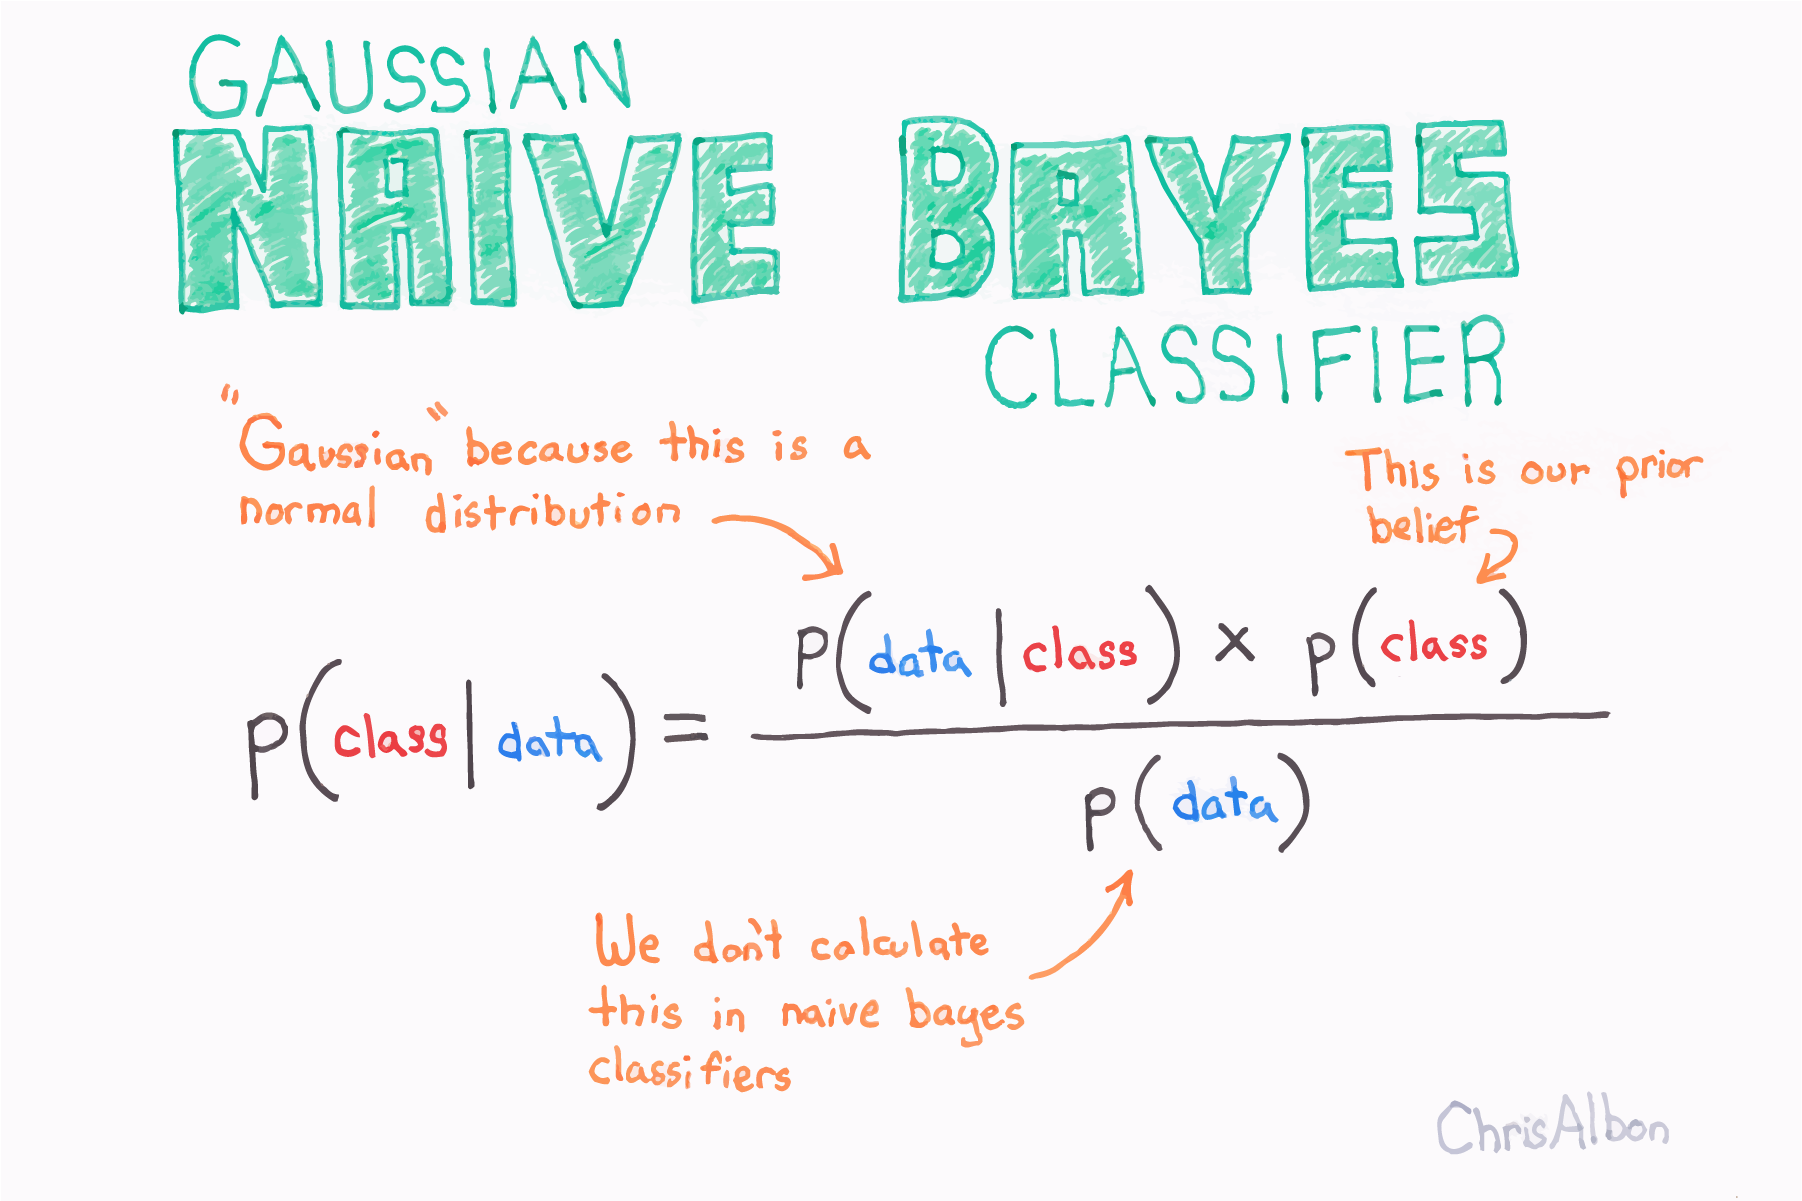 GAUSSIAN
NAIVE BAYES
CLASSIFIER
"Gaussian" because this is a
normal distribution
This is our prior
belief
P(class|data) = P(data|class) × P(class)
P(data)
We don't calculate
this in naive bayes
classifiers
ChrisAlbon